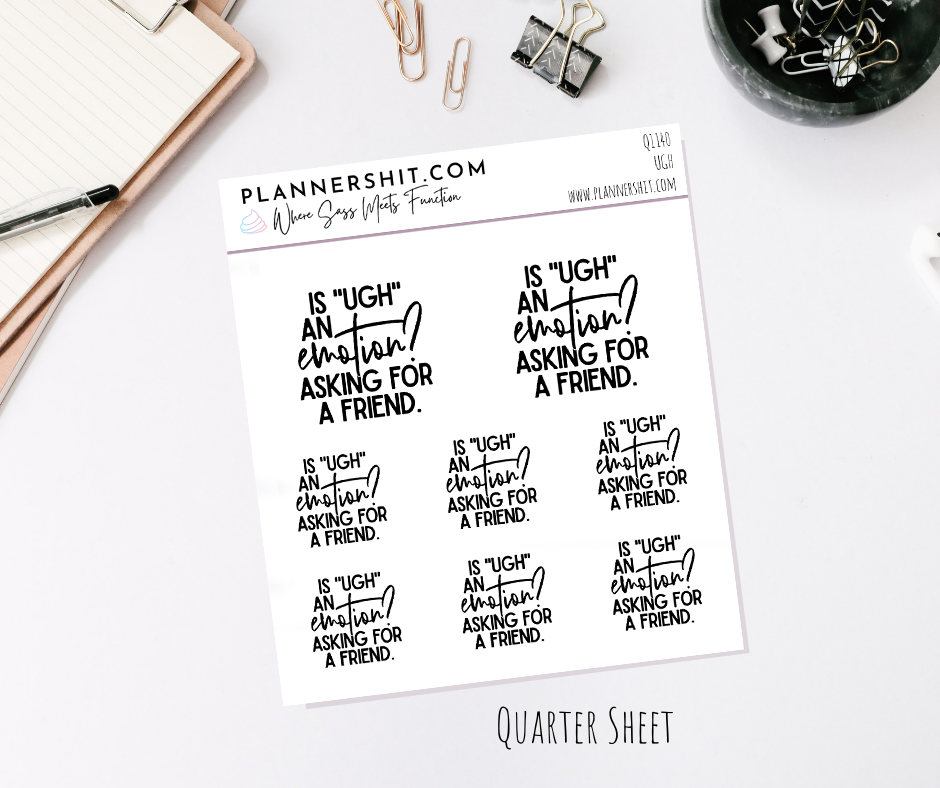 PLANNERSHIT.COM
Where Sass Meets Function
Q1140
UGH
WWW.PLANNERSHIT.COM
IS "UGH"
AN
emotion?
ASKING FOR
A FRIEND.
IS "UGH"
AN
emotion?
ASKING FOR
A FRIEND.
IS "UGH"
AN
emotion?
ASKING FOR
A FRIEND.
IS "UGH"
AN
emotion?
ASKING FOR
A FRIEND.
IS "UGH"
AN
emotion?
ASKING FOR
A FRIEND.
IS "UGH"
AN
emotion?
ASKING FOR
A FRIEND.
IS "UGH"
AN
emotion?
ASKING FOR
A FRIEND.
IS "UGH"
AN
emotion?
ASKING FOR
A FRIEND.
QUARTER SHEET